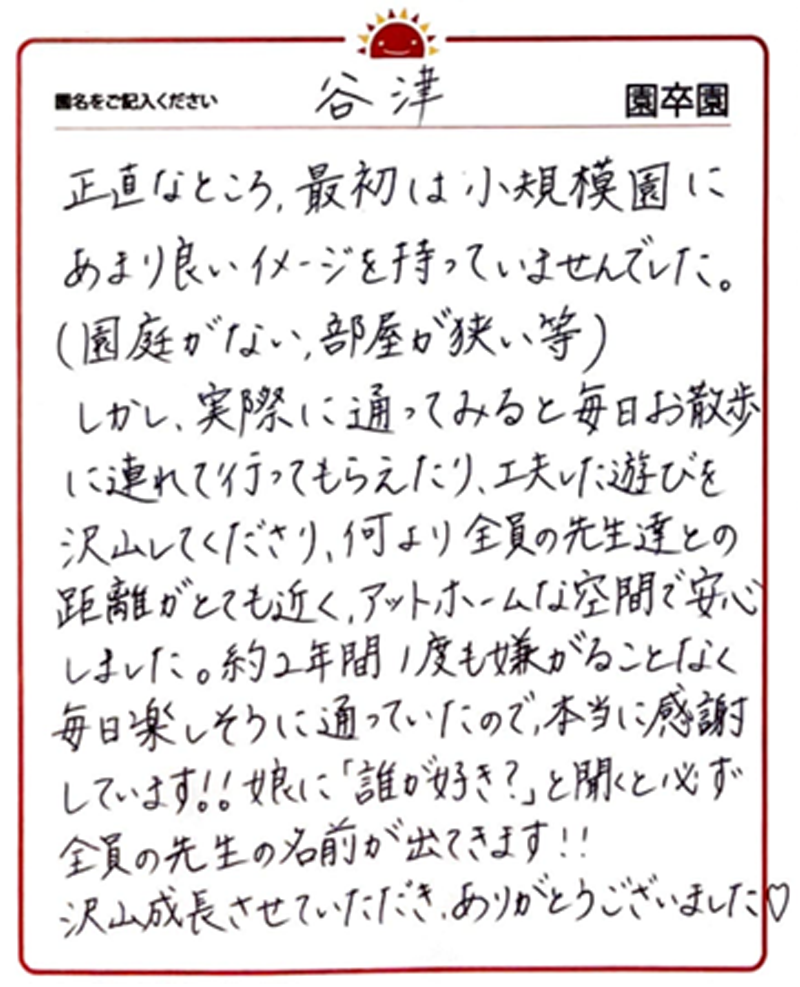 園名をご記入ください 谷津 園卒園
正直なところ、最初は小規模園に
あまり良いイメージを持っていませんでした。
(園庭がない、部屋が狭い等)
しかし、実際に通ってみると毎日お散歩
に連れて行ってもらえたり、工夫した遊びを
沢山してくださり、何より全員の先生達との
距離がとても近く、アットホームな空間で安心
しました。約2年間1度も嫌がることなく
毎日楽しそうに通っていたので、本当に感謝
しています!!娘に「誰が好き?」と聞くと必ず
全員の先生の名前が出てきます!!
沢山成長させていただき、ありがとうございました♡